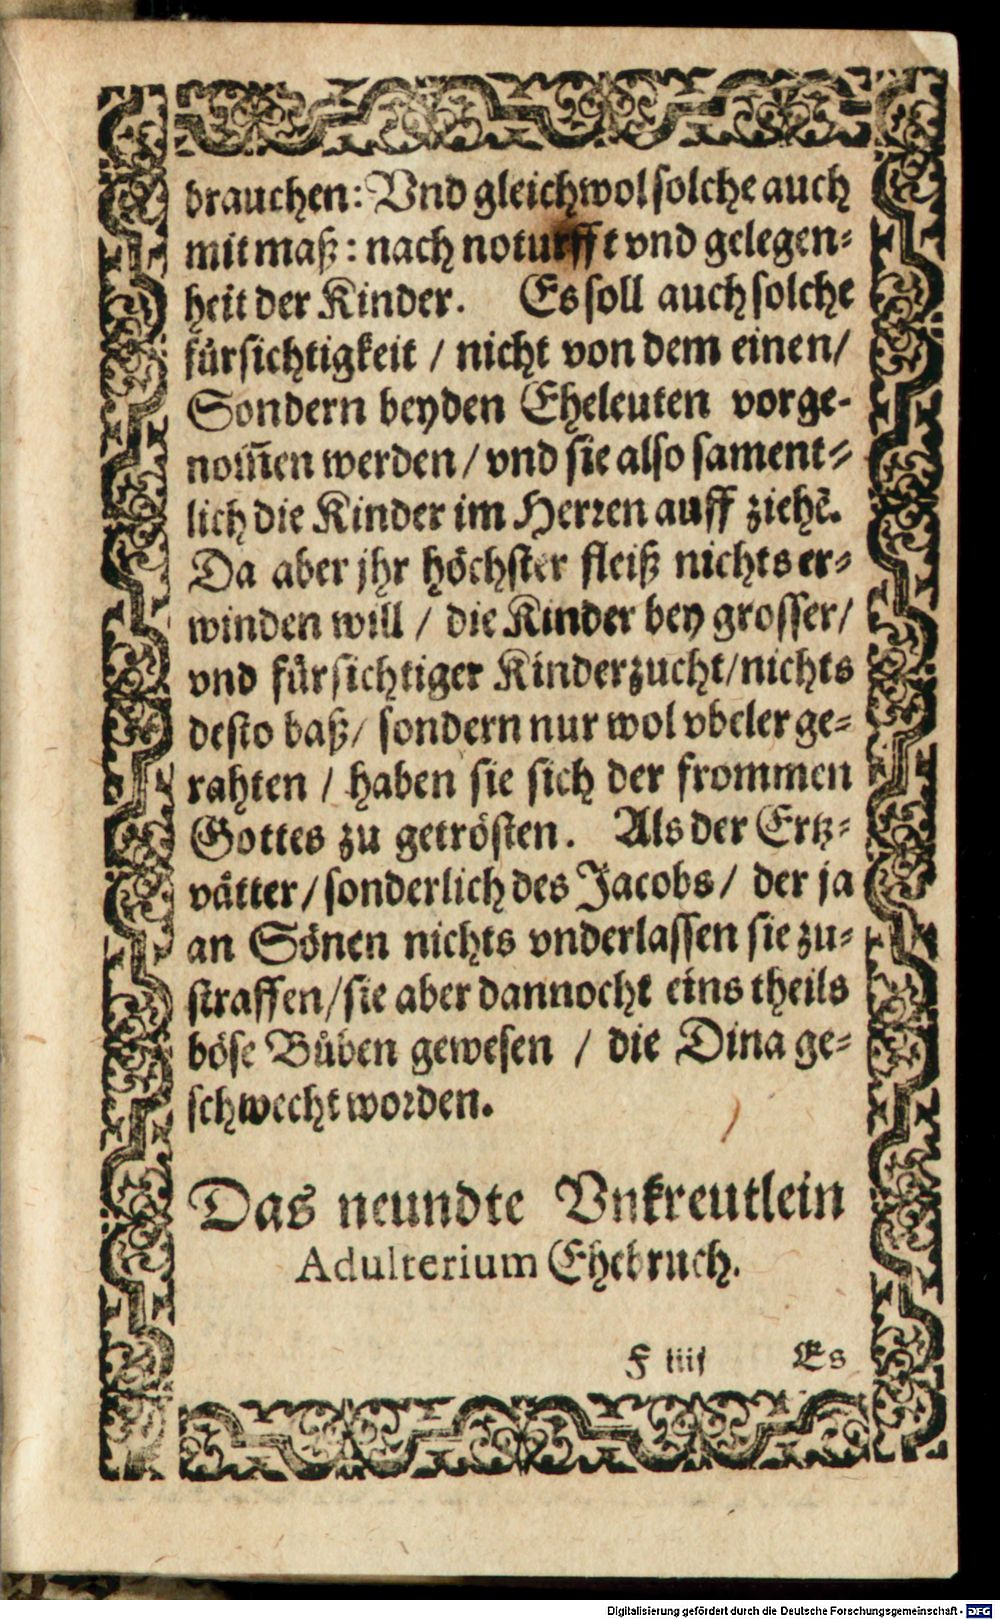 brauchen: Vnd gleichwol solche auch
mit maß: nach noturfft vnd gelegen⸗
heit der Kinder. Es soll auch solche
fürsichtigkeit / nicht von dem einen /
Sondern beyden Eheleuten vorge⸗
nom̃en werden / vnd sie also sament⸗
lich die Kinder im Herren auff ziehẽ.
Da aber jhr höchster fleiß nichts er⸗
winden will / die Kinder bey grosser /
vnd fürsichtiger Kinderzucht / nichts
desto baß / sondern nur wol vbeler ge⸗
rahten / haben sie sich der frommen
Gottes zu getrösten. Als der Ertz⸗
vätter / sonderlich des Jacobs / der ja
an Sönen nichts vnderlassen sie zu⸗
straffen / sie aber dannocht eins theils
böse Büben gewesen / die Dina ge⸗
schwecht worden.
Das neundte Vnkreutlein
Adulterium Ehebruch.
F iiij Es
Digitalisierung gefördert durch die Deutsche Forschungsgemeinschaft - DFG